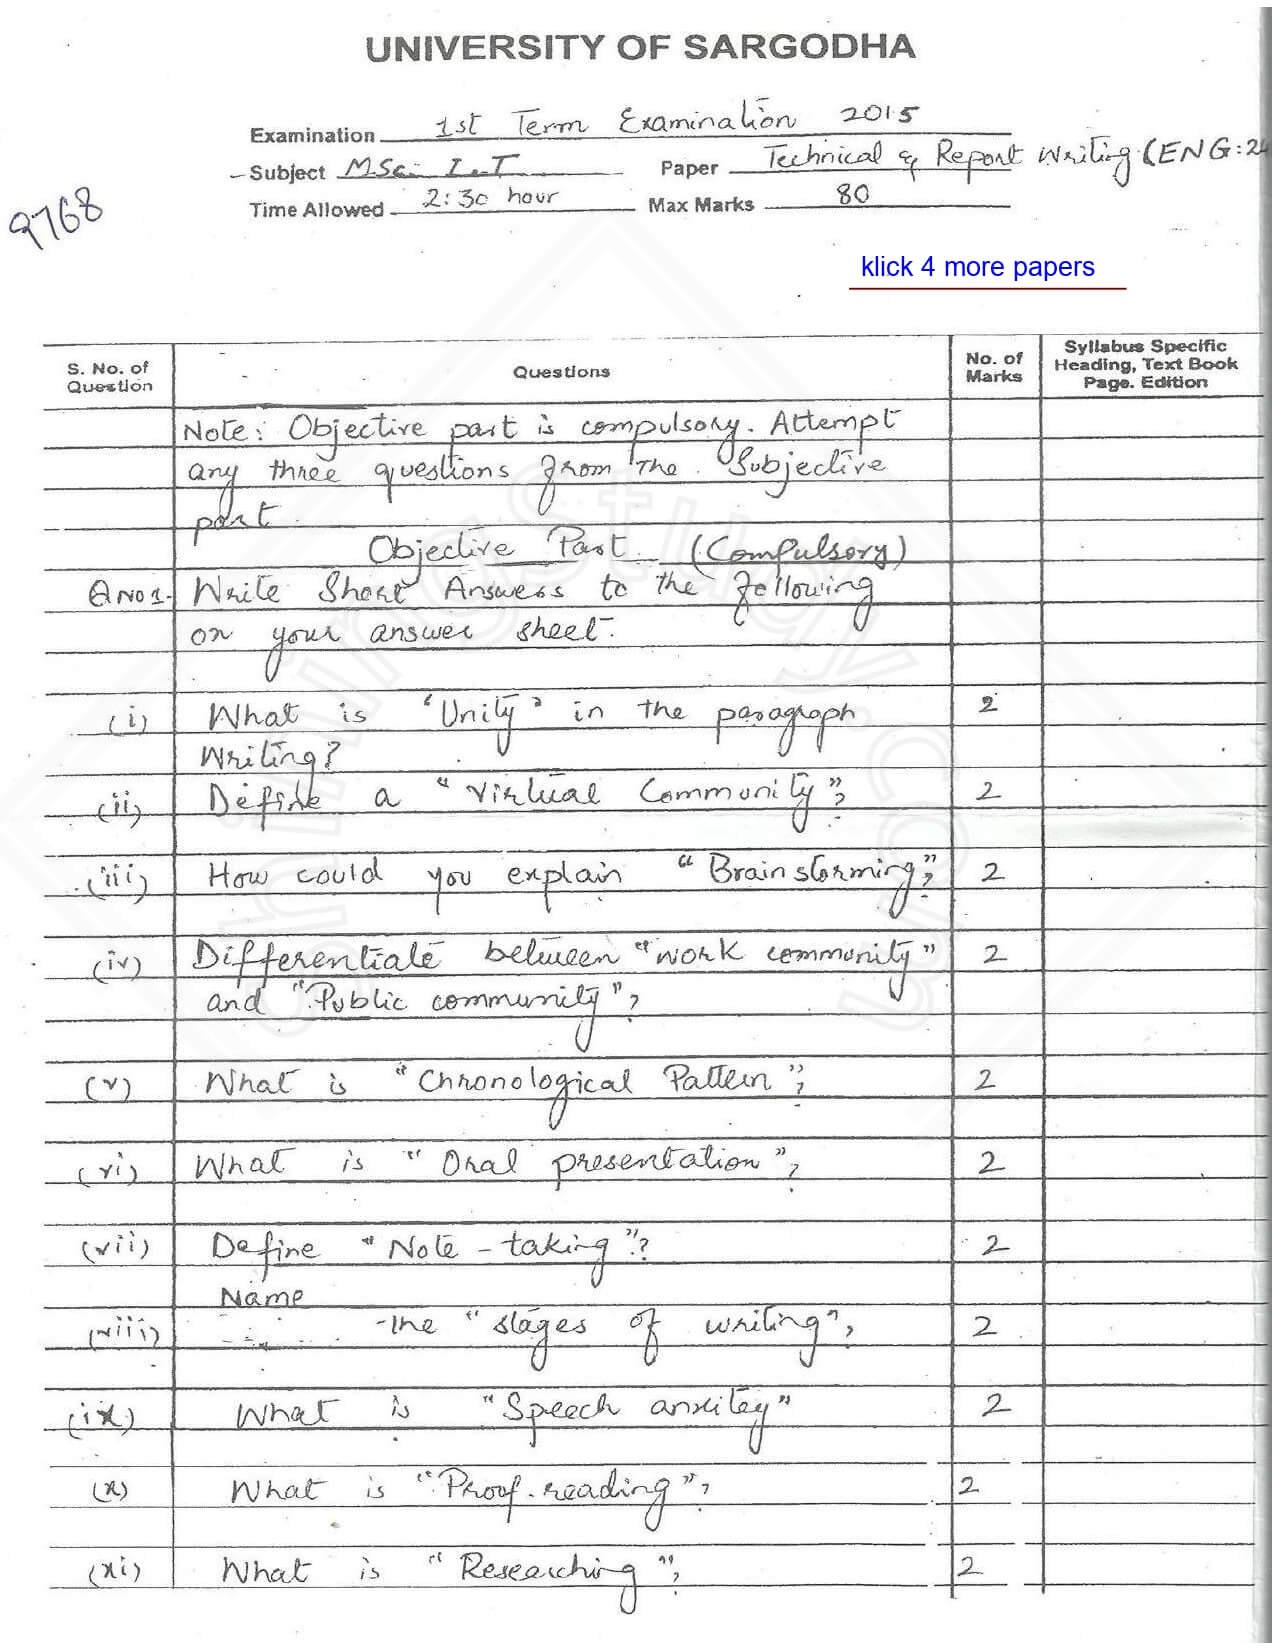 UNIVERSITY OF SARGODHA
Examination 1st Term Examination 2015
Subject MSc. I.T Paper Technical & Report Writing (ENG:24
9768
Time Allowed 2:30 hour Max Marks 80
klick 4 more papers
S. No. of Question Questions No. of Marks Syllabus Specific Heading, Text Book Page. Edition
Note: Objective part is compulsory. Attempt
any three questions from The Subjective
part
Objective Part (Compulsory)
Q NO 1. Write Short Answers to the following
on your answer sheet.
(i) What is 'Unity' in the paragraph 2
Writing?
(ii) Define a "Virtual Community"? 2
(iii) How could you explain "Brainstorming"? 2
(iv) Differentiate between "work community" 2
and "Public community"?
(v) What is "Chronological Pattern"? 2
(vi) What is "Oral presentation"? 2
(vii) Define "Note-taking"? 2
Name
(viii) the "stages of writing"? 2
(ix) What is "Speech anxitey" 2
(x) What is "Proof-reading"? 2
(xi) What is "Researching"? 2
shiningstudy.com